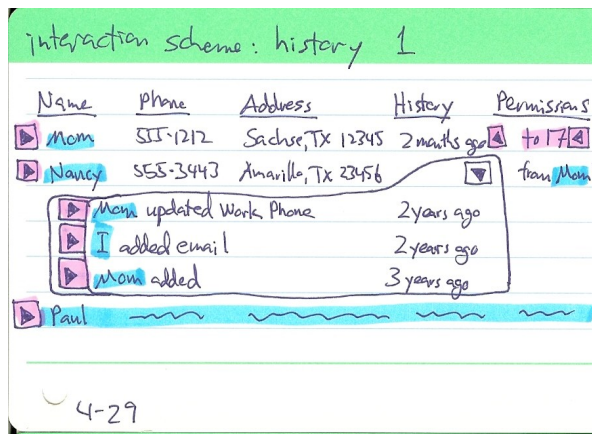 interaction scheme: history 1
Name Phone Address History Permissions
Mom 555-1212 Sachse, TX 12345 2 months ago to 17
Nancy 555-3443 Amarillo, TX 23456 from Mom
Mom updated Work Phone 2 years ago
I added email 2 years ago
Mom added 3 years ago
Paul
4-29